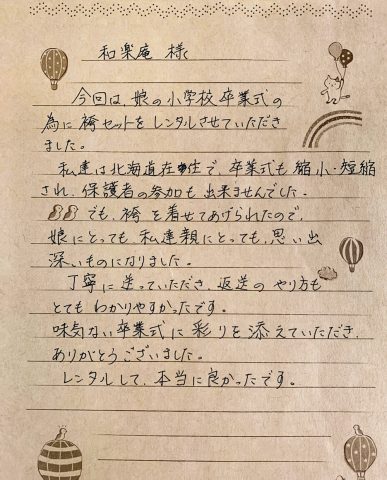 和楽庵 様
今回は、娘の小学校卒業式の
為に袴セットをレンタルさせていただき
ました。
私達は北海道在住で、卒業式も縮小・短縮
され、保護者の参加も出来ませんでした。
でも、袴を着せてあげられたので、
娘にとっても、私達親にとっても、思い出
深いものになりました。
丁寧に送っていただき、返送のやり方も
とてもわかりやすかったです。
味気ない卒業式に彩りを添えていただき、
ありがとうございました。
レンタルして、本当に良かったです。